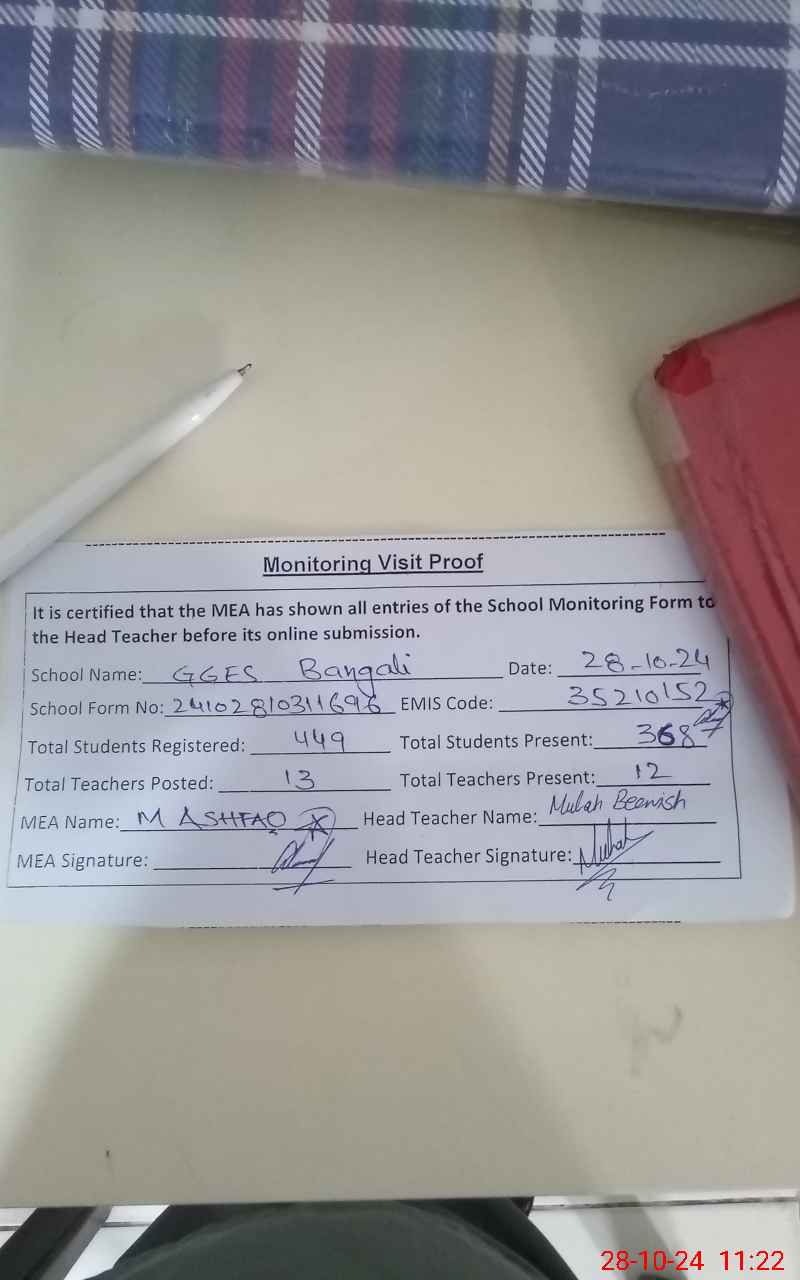 Monitoring Visit Proof
It is certified that the MEA has shown all entries of the School Monitoring Form to
the Head Teacher before its online submission.
School Name: GGES Bangali Date: 28-10-24
School Form No: 24102810311696 EMIS Code: 35210152
Total Students Registered: 449 Total Students Present: 368
Total Teachers Posted: 13 Total Teachers Present: 12
MEA Name: M ASHFAQ Head Teacher Name: Mulah Beenish
MEA Signature: Head Teacher Signature:
28-10-24 11:22